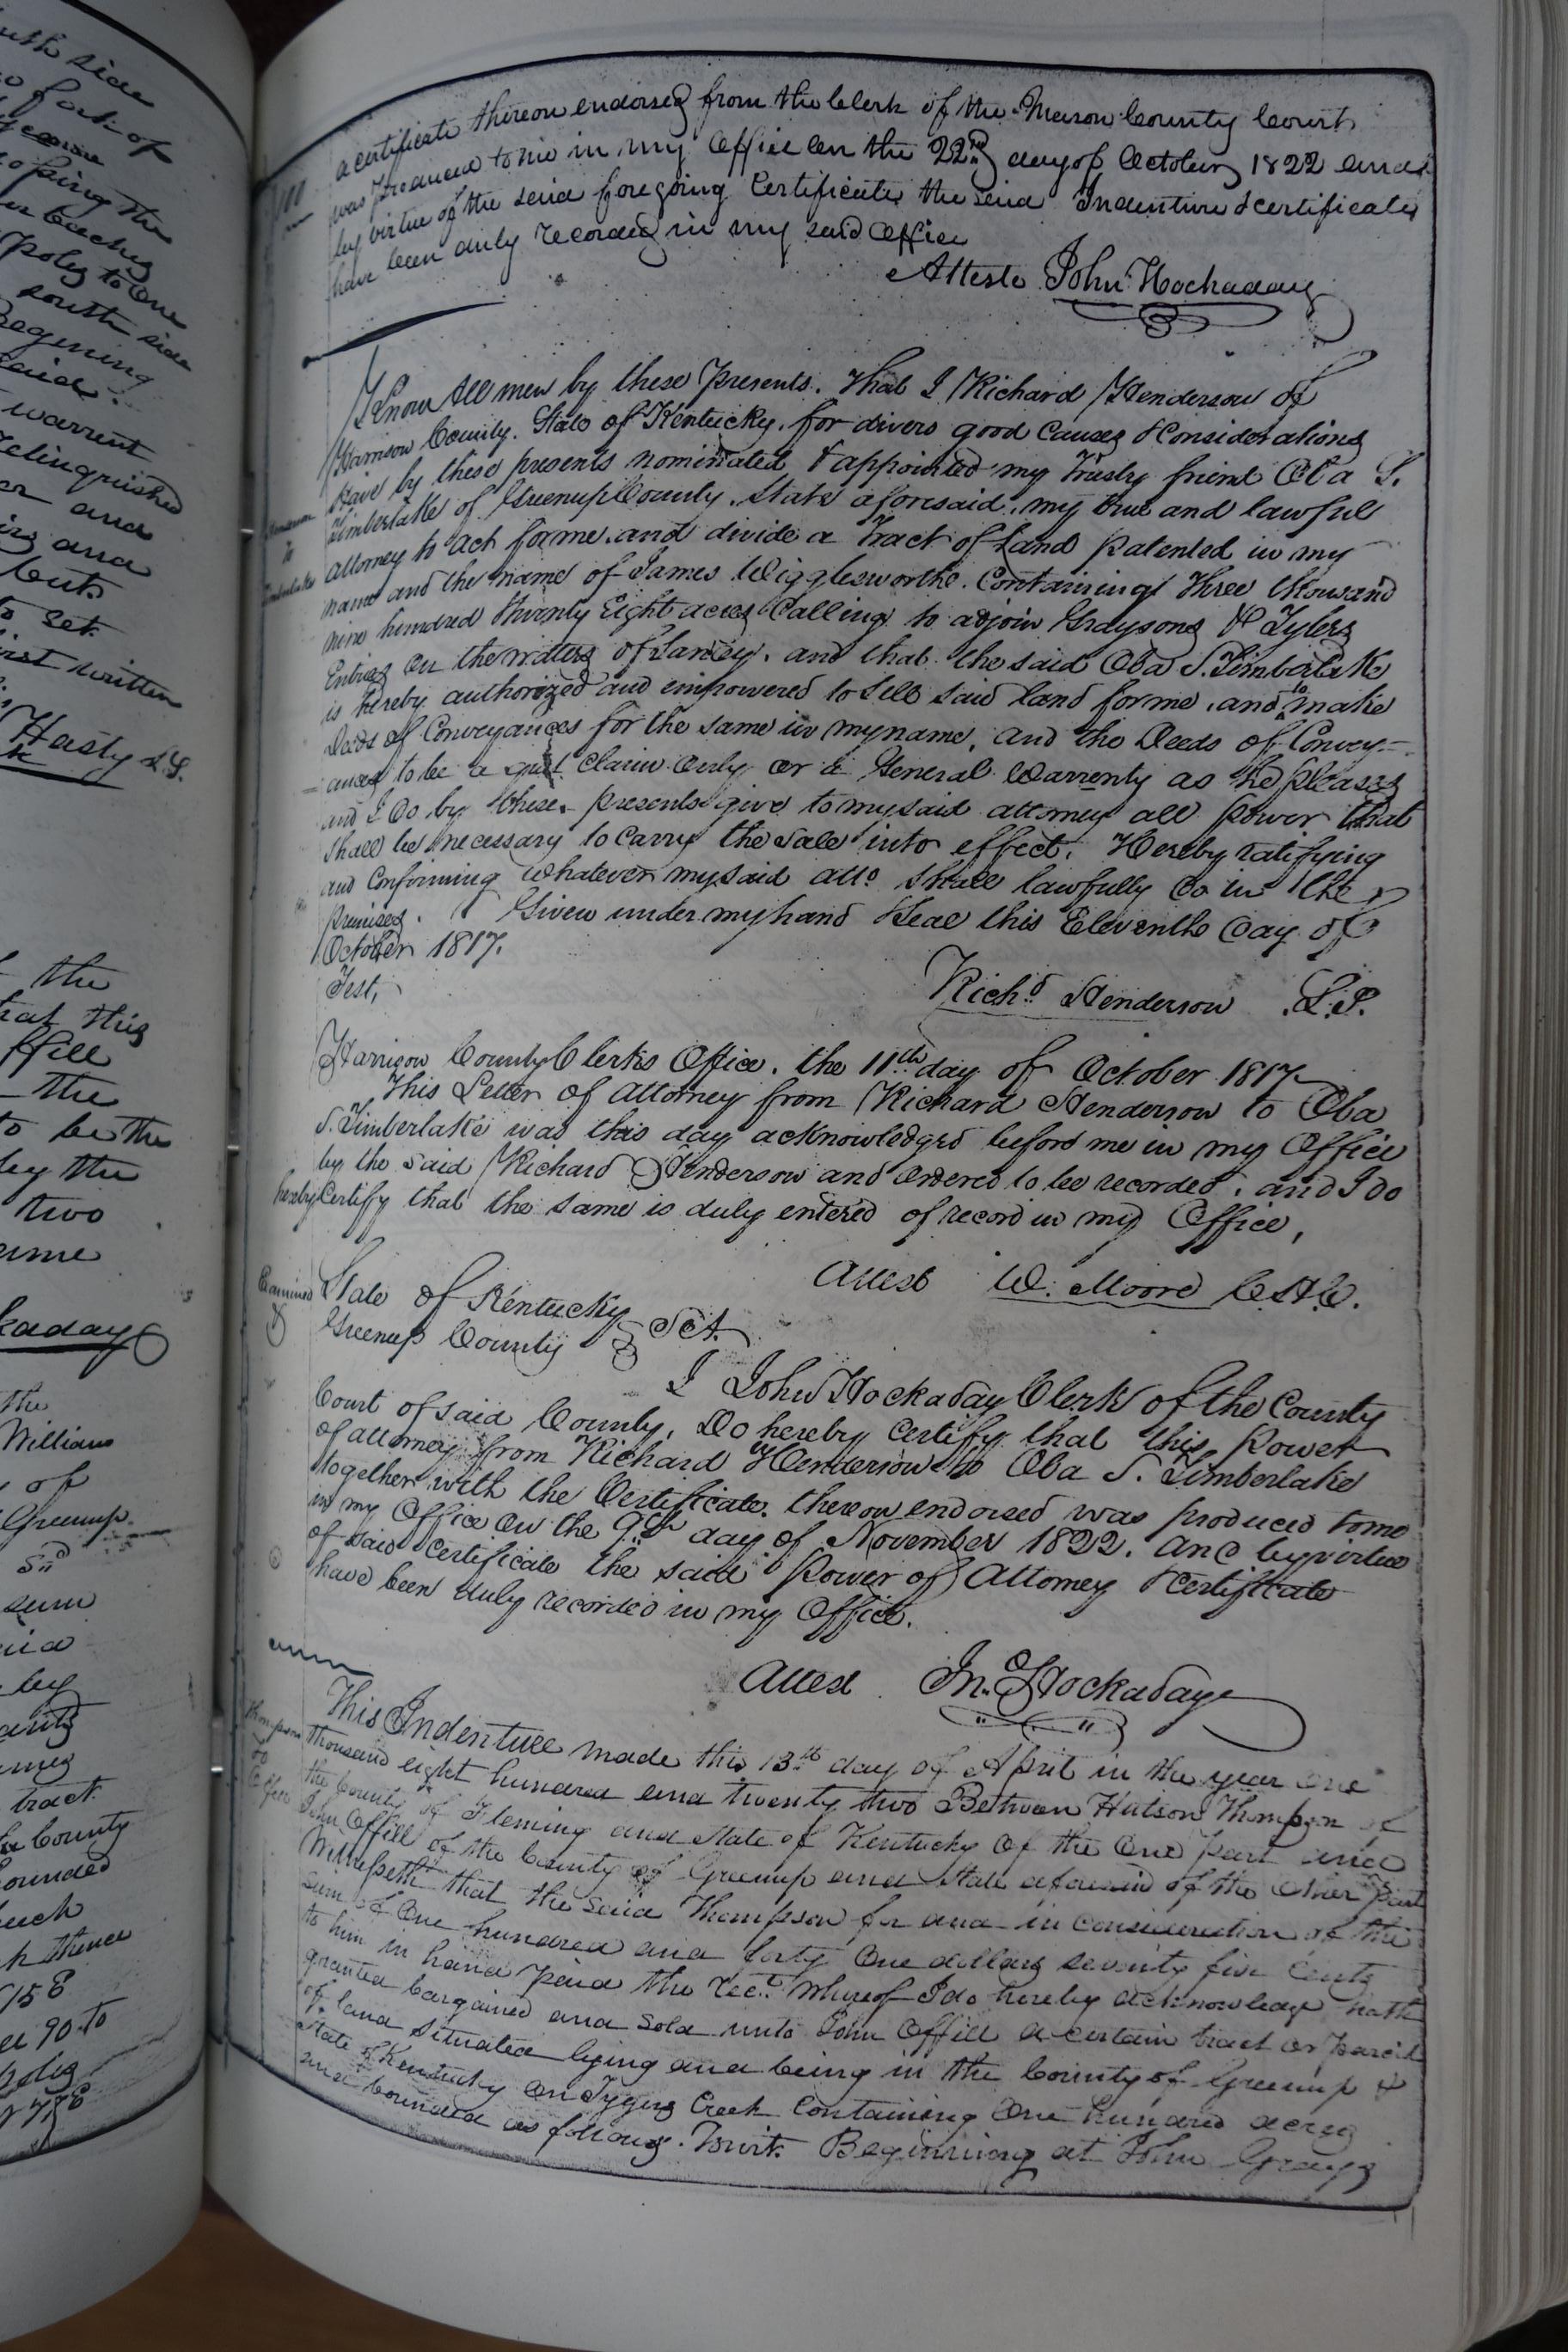 a certificate thereon endorsed from the Clerk of the Mason County Court
was produced to me in my office on the 22nd day of October 1822 and
by virtue of the said foregoing Certificate the said Indenture & certificate
have been duly recorded in my said office
Atteste John Hockaday
Know All men by these Presents. That I Richard Henderson of
Harrison County. State of Kentucky. for divers good Causes & Considerations
Have by these presents nominated & appointed my Trusty friend Oba S.
Timberlake of Greenup County. State aforesaid, my true and lawful
attorney to act for me. and divide a Tract of Land Patented in my
name and the name of James Wigglesworth. Containing Three thousand
nine hundred thirty Eight acres Calling to adjoin Graysons & Tylers
Entries on the waters of Sandy. and that the said Oba S. Timberlake
is hereby authorized and empowered to sell said land for me. and to make
Deeds of Conveyances for the same in my name. and the Deeds of Convey-
-ances to be a quit Claim only or a General Warrenty as he pleases
and I do by these presents give to my said attorney all Power that
shall be necessary to Carry the sale into effect. Hereby ratifying
and Confirming Whatever my said atto shall lawfully do in the
premises. Given under my hand & seal this Eleventh day of
October 1817.
Test,
Richd Henderson L.S.
Harrison County Clerks Office. the 11th day of October 1817
This Letter of attorney from Richard Henderson to Oba
S. Timberlake was this day acknowledged before me in my Office
by the said Richard Henderson and ordered to be recorded. and I do
hereby Certify that the same is duly entered of record in my Office,
Attest W. Moore C.H.C.
Examined
State of Kentucky
Greenup County } Sct.
I John Hockaday Clerk of the County
Court of said County, Do hereby Certify that this Power
of attorney from Richard Henderson to Oba S. Timberlake
together with the Certificate. thereon endorsed was produced to me
in my Office on the 9th day of November 1822. and by virtue
of said Certificate the said Power of Attorney & Certificate
have been duly recorded in my Office.
Attest Jno Hockaday
Thompson
to
Offill
This Indenture made this 13th day of April in the year One
thousand eight hundred and twenty two Between Hutson Thompson of
the County of Fleming and State of Kentucky of the One part and
John Offill of the County of Greenup and State aforesaid of the Other part
Witnesseth that the said Thompson for and in consideration of the
sum of One hundred and forty One dollars seventy five Cents
to him in hand paid the rect. whereof I do hereby acknowledge hath
granted bargained and sold unto John Offill a certain tract or parcel
of land situated lying and being in the County of Greenup &
State of Kentucky on Tygers Creek Containing One hundred acres
and bounded as follows. Towit. Beginning at John Grays